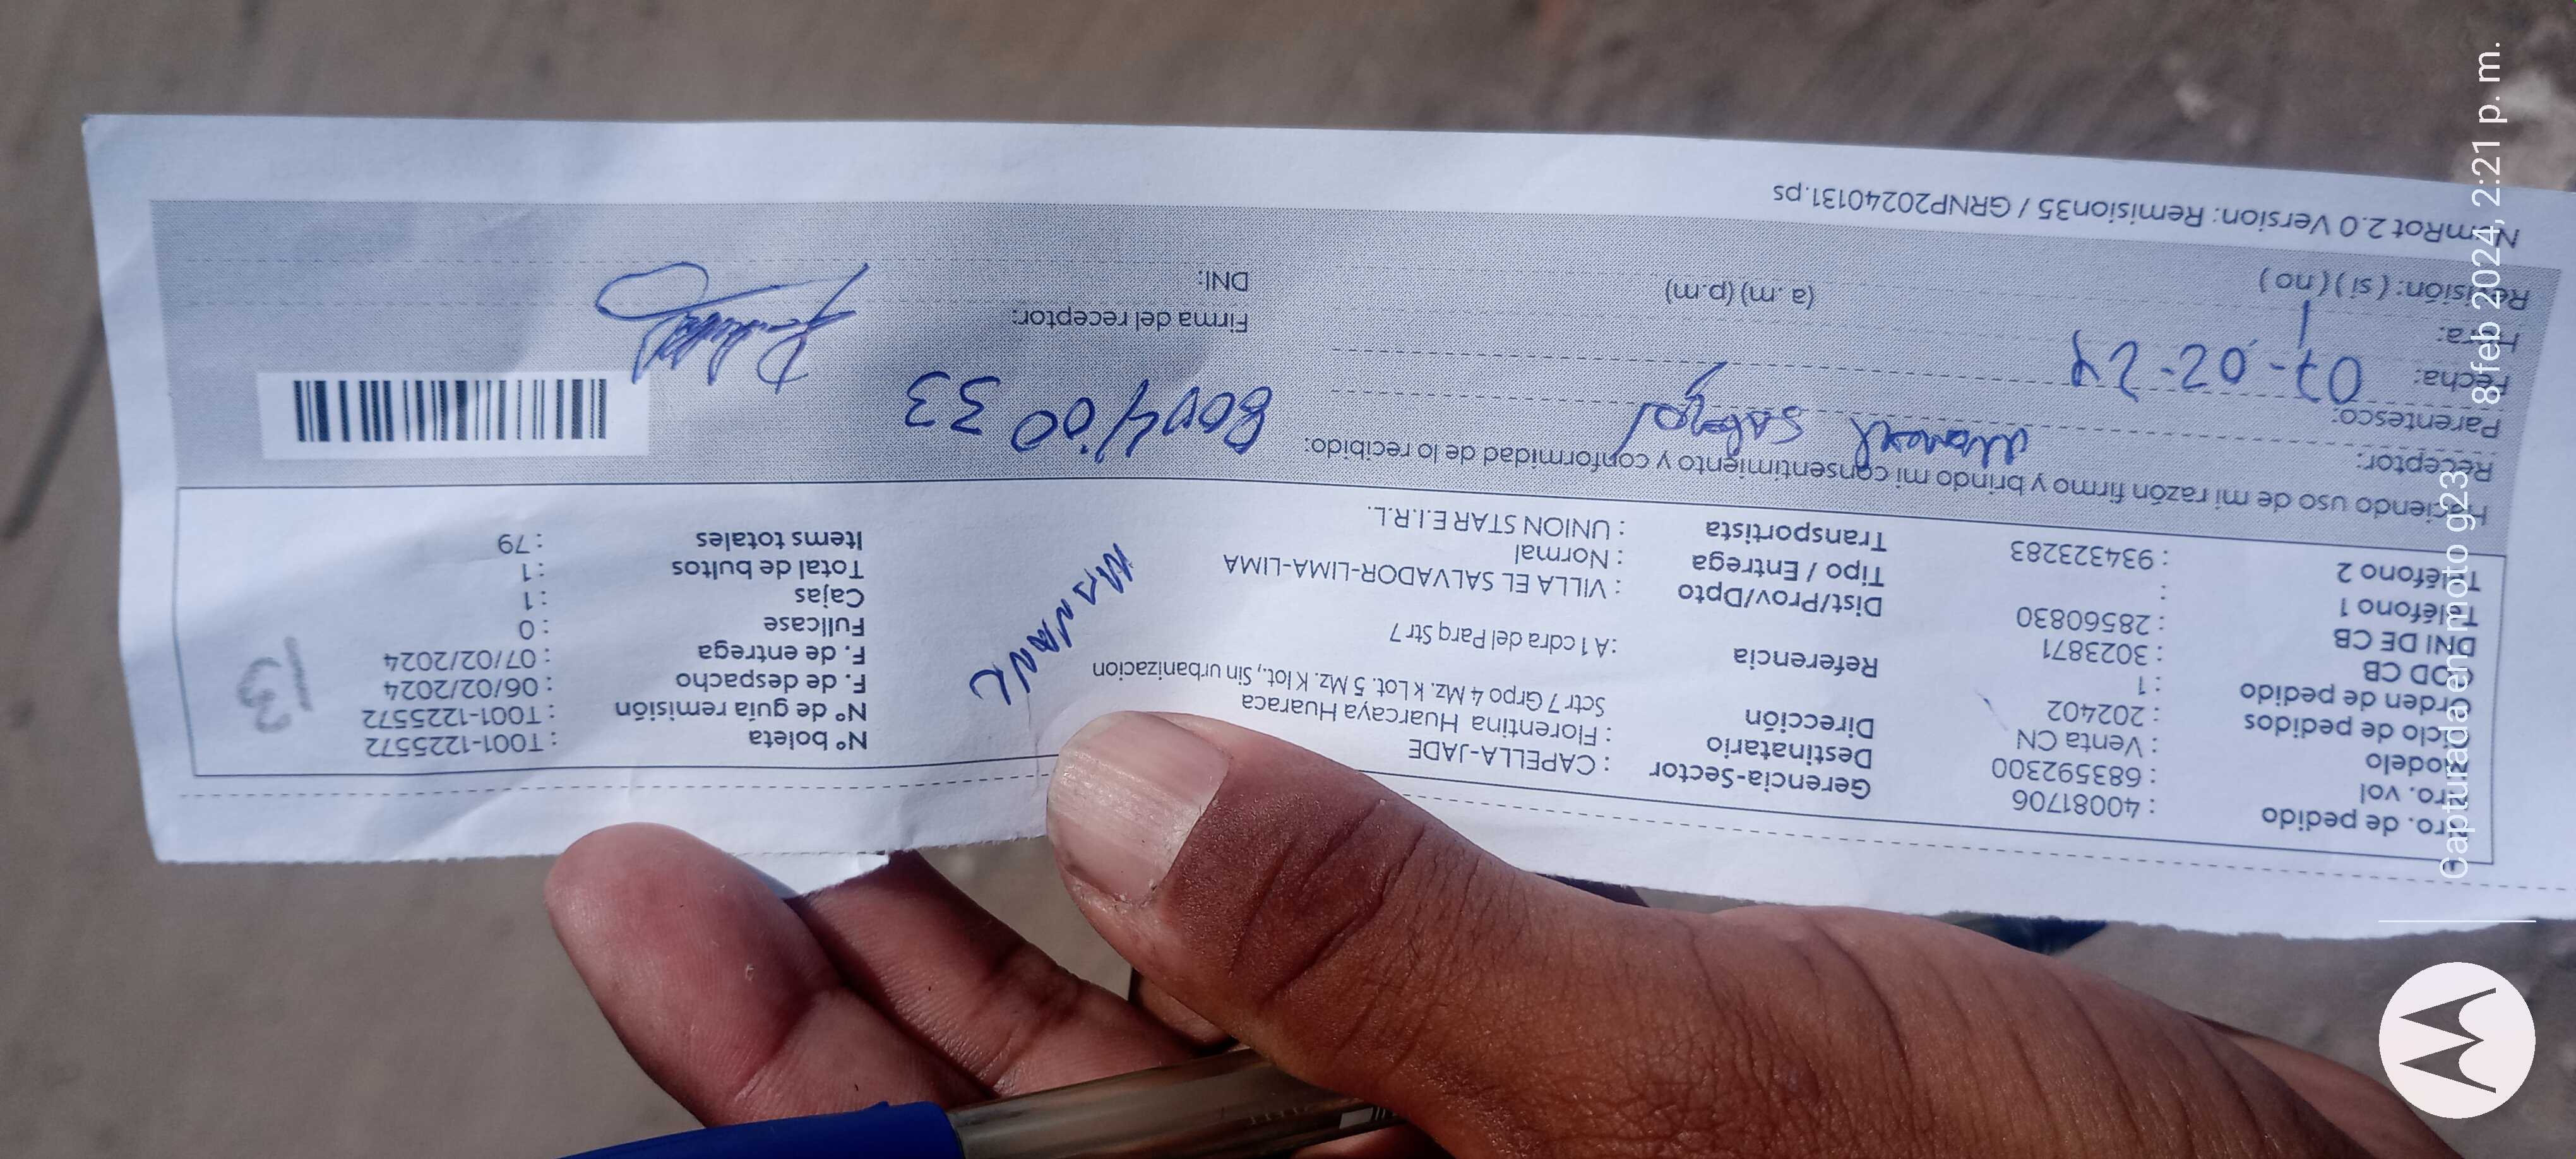 Nro. de pedido : 40081706
Nro. vol : 683592300
Modelo : Venta CN
Ciclo de pedidos : 202402
Orden de pedido : 1
COD CB : 3023871
DNI DE CB : 28560830
Teléfono 1 :
Teléfono 2 : 934323283
Gerencia-Sector : CAPELLA-JADE
Destinatario : Florentina Huarcaya Huaraca
Dirección Sctr 7 Grpo 4 Mz. k Lot. 5 Mz. K lot., Sin urbanizacion
Referencia : A 1 cdra del Parq Str 7
Dist/Prov/Dpto : VILLA EL SALVADOR-LIMA-LIMA
Tipo / Entrega : Normal
Transportista : UNION STAR E.I.R.L.
N° boleta : T001-1225572
N° de guía remisión : T001-1225572
F. de despacho : 06/02/2024
F. de entrega : 07/02/2024
Fullcase : 0
Cajas : 1
Total de bultos : 1
Items totales : 79
13
Haciendo uso de mi razón firmo y brindo mi consentimiento y conformidad de lo recibido:
Receptor: Manuel
Parentesco:
Fecha: 07-02-24
Hora: (a .m) (p.m)
Revisión: ( si ) ( no )
Firma del receptor:
DNI:
NumRot 2.0 Version: Remision35 / GRNP20240131.ps
Capturada en moto g23
8 feb 2024, 2:21 p. m.